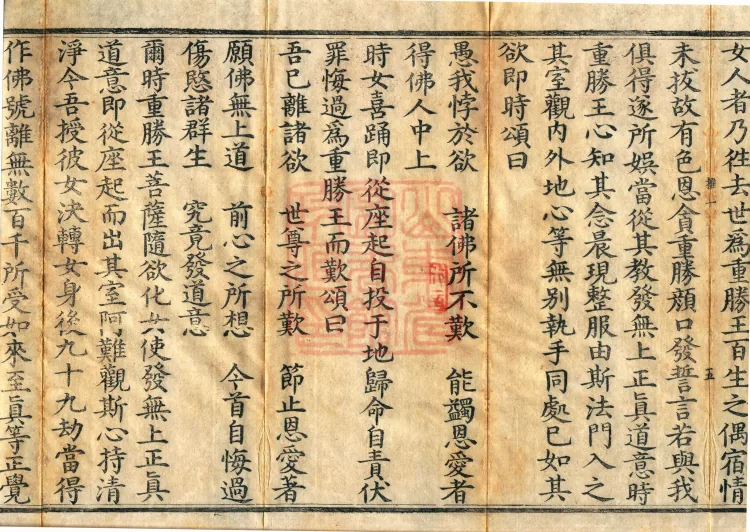 女人者乃往去世爲重勝王百生之偶宿情
未拔故有色恩貪重勝顔口發誓言若與我
俱得遂所娛當從其教發無上正眞道意時
重勝王心知其念晨現整服由斯法門入之
其室觀内外地心等無別執手同處已如其
欲即時頌曰
愚我悖於欲 諸佛所不歎 能蠲恩愛者
得佛人中上
時女喜踊即從座起自投于地歸命自責伏
罪悔過爲重勝王而歎頌曰
吾已離諸欲 世尊之所歎 節止恩愛著
願佛無上道 前心之所想 今首自悔過
傷愍諸群生 究竟發道意
爾時重勝王菩薩隨欲化女使發無上正眞
道意即從座起而出其室阿難觀斯心持清
淨今吾授彼女決轉女身後九十九劫當得
作佛號離無數百千所受如來至眞等正覺